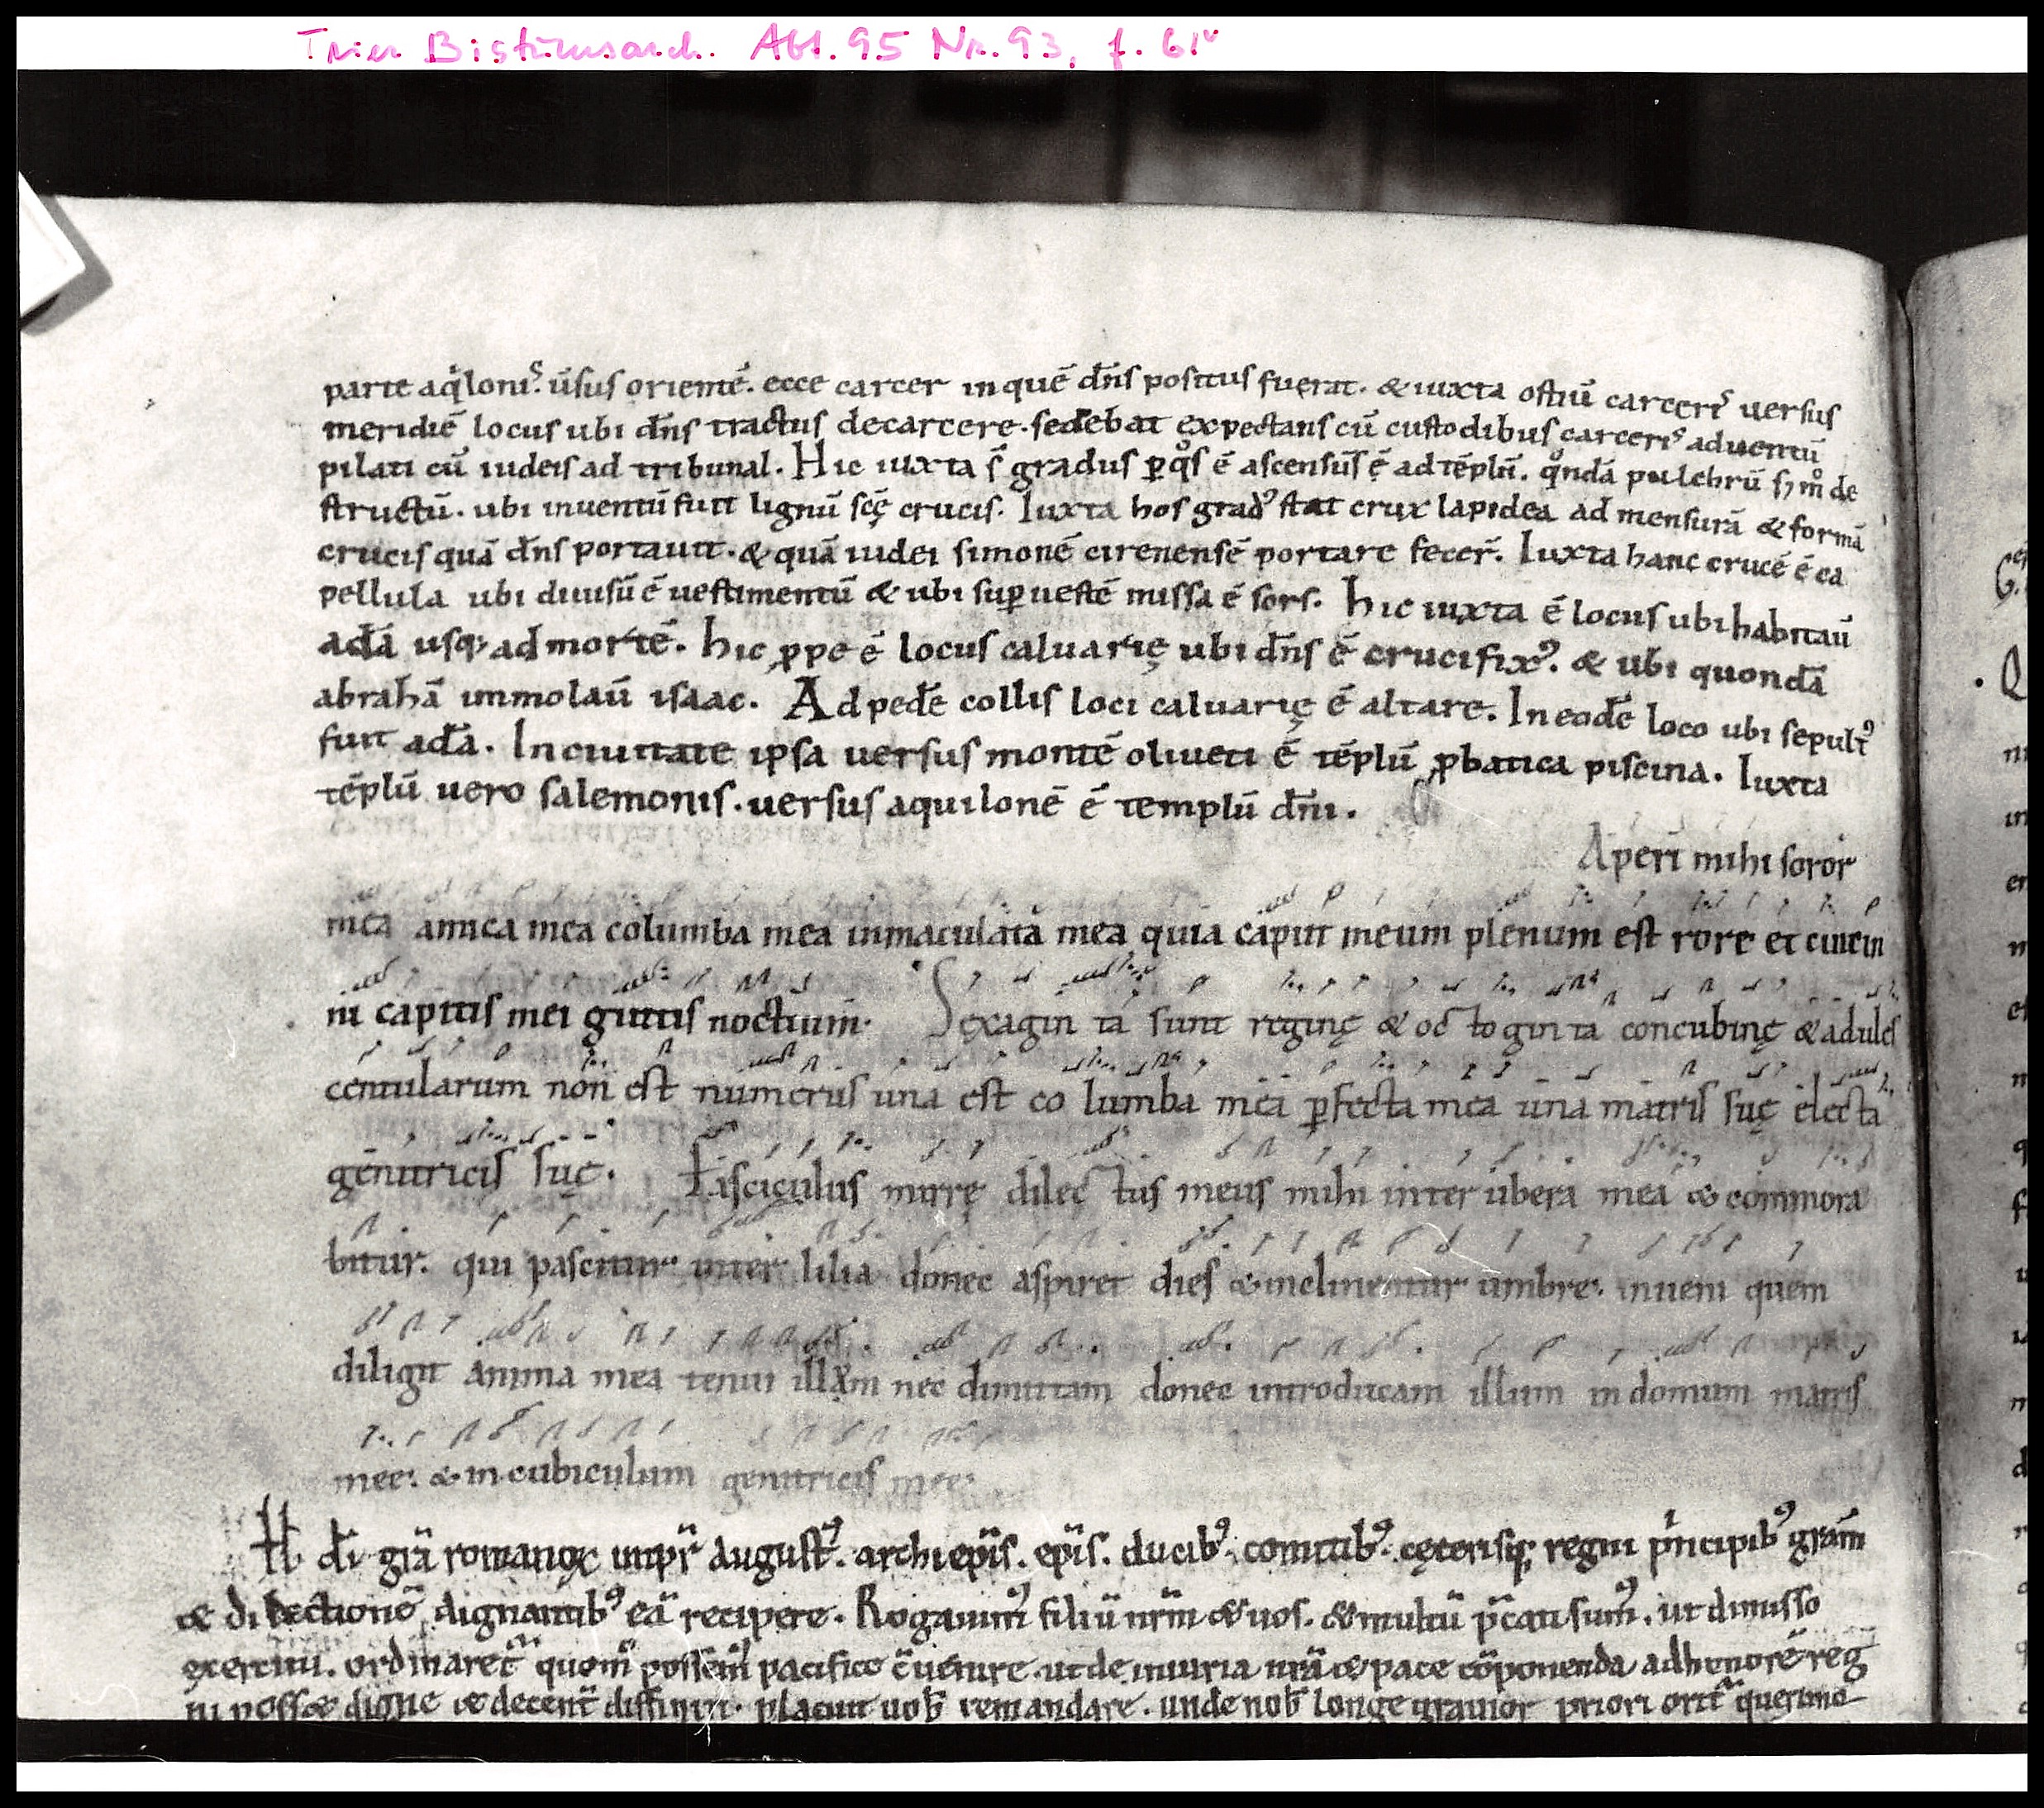 Trier Bistumsarch. Abt. 95 Nr. 93, f. 61v
parte aq̍loniˢ. ūsus orientē. ecce carcer in quē dn̄s positus fuerat. & iuxta ostiū carceriˢ uersus
meridiē locus ubi dn̄s tractus de carcere. sedebat expectans cū custodibus carceriˢ aduentū
pilati cū iudeis ad tribunal. Hic iuxta s̄ gradus ꝑ qͦs ē ascensūs ē ad tēplū. qͦndā pulchrū sʒ mͦ de
structū. ubi inuentū fuit lignū scę̄ crucis. Iuxta hos gradꝰ stat crux lapidea ad mensurā & formā
crucis quā dn̄s portauit. & quā iudei simonē cirenensē portare fecer̄. Iuxta hanc crucē ē ca
pellula ubi diuisū ē uestimentū & ubi suꝑ uestē missa ē sors. hic iuxta ē locus ubi habitau̅
adā usq; ad mortē. hic ꝓpe ē locus caluarię ubi dn̄s ē crucifixꝰ. & ubi quondā
abrahā immolau̅ isaac. Ad pedē collis loci caluarię ē altare. In eodē loco ubi sepultꝰ
fuit adā. In ciuitate ipsa uersus montē oliueti ē tēplū ꝓbatica piscina. Iuxta
tēplū uero salemonis. uersus aquilonē ē templū dn̄i.
Aperi mihi soror
mea amica mea columba mea inmaculata mea quia caput meum plenum est rore et cincin
ni capitis mei guttis noctium. Sexagin ta sunt reginę & oc to gin ta concubinę & adules
centularum non est numerus una est co lumba mea ꝑfecta mea una matris suę electa
genitricis suę. Fasciculus mirrę dilec tus meus mihi inter ubera mea & commora
bitur. qui pascitur inter lilia donec aspiret dies & inclinentur umbre. inueni quem
diligit anima mea tenui illum nec dimittam donec introducam illum in domum matris
mee. & in cubiculum genitricis mee.
H di gr̄a romanoꝝ impr̄ augustꝰ. archiepīs. epīs. ducibꝰ. comitibꝰ. cęterisqꝫ regni pͥncipibꝰ grām
& dilectionē dignantibꝰ eā recipere. Rogauimꝰ filiū nr̄m & uos. & multū p̄cati sumꝰ. ut dimisso
exercitu. ordinaret̄ quom̄ possemꝰ pacifice c̄uenire. ut de iniuria nr̄a & pace cōponenda ad honorē reg
ni posset digne & decent̄ diffiniri. placuit uob̄ remandare. unde nob̄ longe grauior priori orit̄ querimo